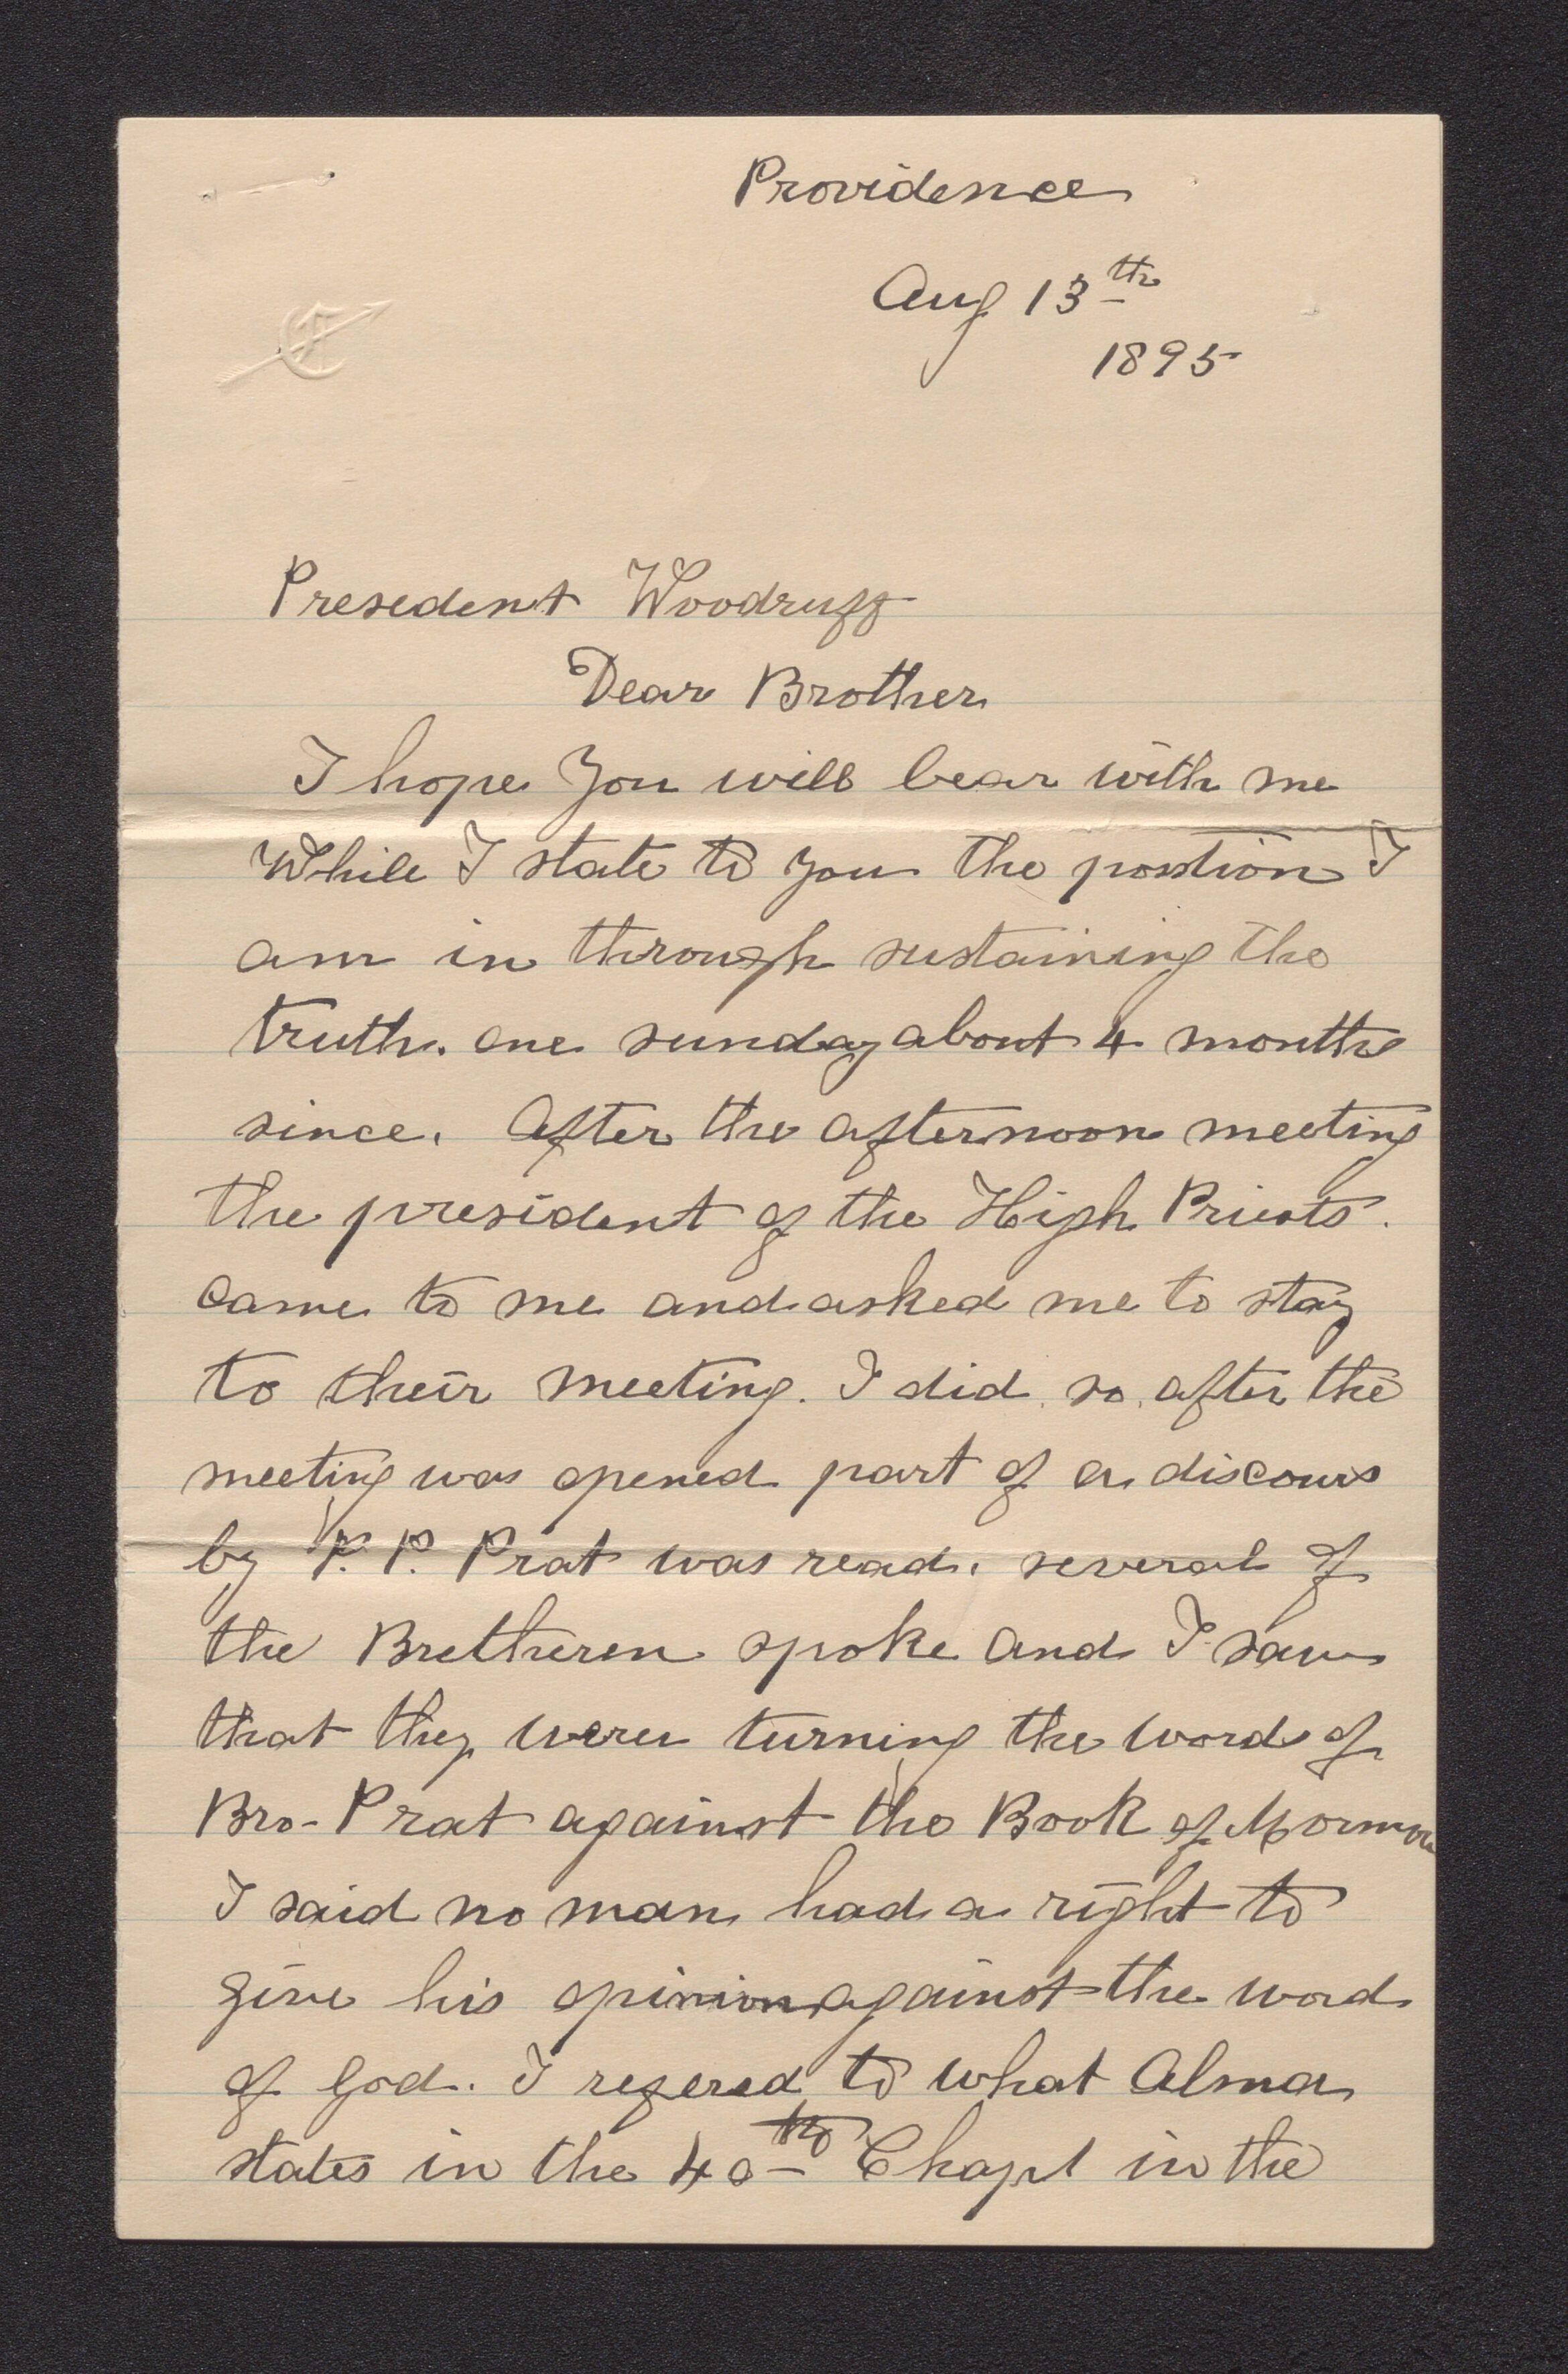 Providence
Aug 13th
1895
Presedent Woodruff
Dear Brother
I hope you will bear with me
While I state to you the postion I
am in through sustaining the
truth. one sunday about 4 months
since. After the afternoon meeting
the president of the High Priests.
came to me and asked me to stay
to their meeting. I did so, after the
meeting was opened part of a discours
by P. P. Prat was read. several of
the Bretheren spoke and I saw
that they were turning the words of
Bro- Prat against the Book of Mormon
I said no man had a right to
give his opinion against the word
of God. I refered to what Alma
states in the 40th Chapt in the